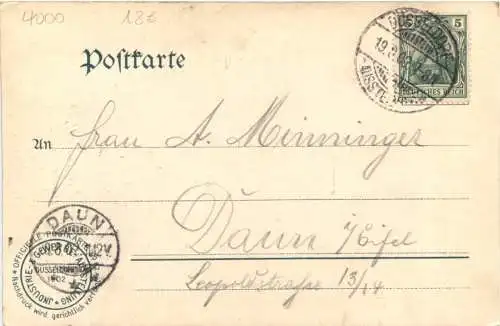 4000 18€
DÜSSELDORF
5
19.8.02
AUSSTELLUNG
DEUTSCHES REICH
Postkarte
An Frau A. Minninger
Daun i/Eifel
Leopoldstraße 13/14
DAUN
OFFICIELLE POSTKARTE
GEWERBE
INDUSTRIE
DÜSSELDORF
1902
Nachdruck wird gerichtlich verfolgt